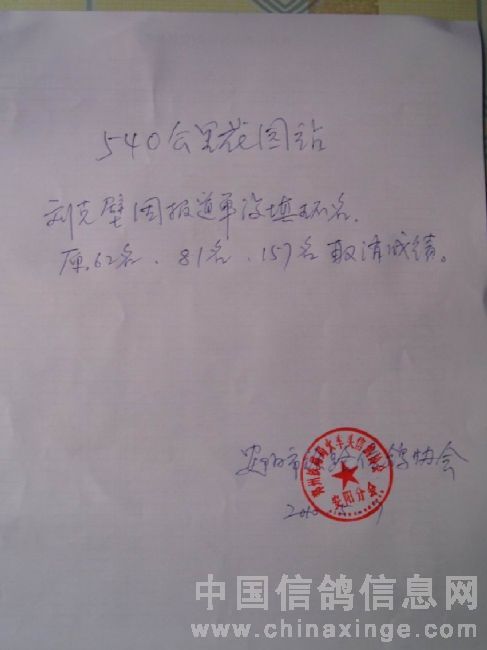 540公里花园站
刘克壁因报道单没填环名.
原62名、81名、157名取消成绩。
安阳市信鸽协会
安阳分会
中国信鸽信息网
www.chinaxinge.com